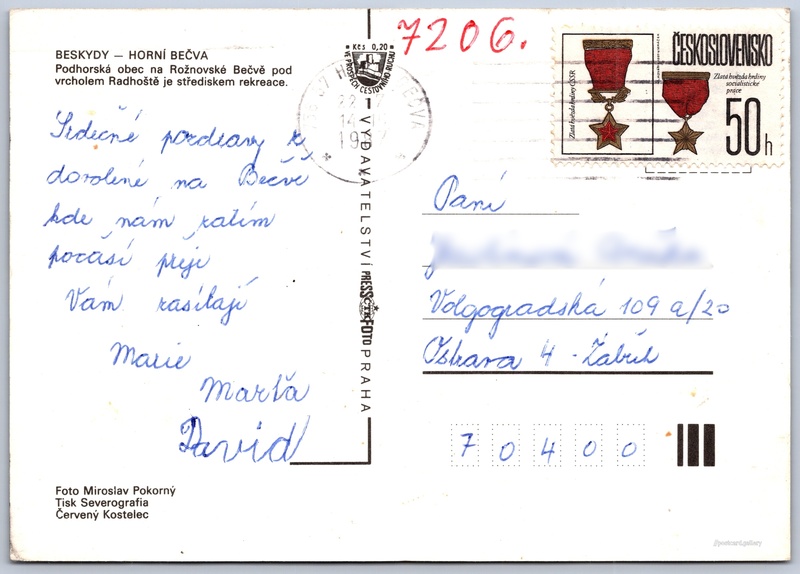 BESKYDY — HORNÍ BEČVA
Podhorská obec na Rožnovské Bečvě pod
vrcholem Radhoště je střediskem rekreace.
Srdečné pozdravy z
dovolené na Bečvě
kde nám zatím
počasí přeje
Vám zasílají
Marie
Marťa
David
Foto Miroslav Pokorný
Tisk Severografia
Červený Kostelec
Kčs 0,20
VE PROSPĚCH CESTOVNÍHO RUCHU
VYDAVATELSTVÍ PRESSFOTO PRAHA
ČTK
7206.
BEČVA
22
14
ČESKOSLOVENSKO
Zlatá hvězda hrdiny ČSSR
Zlatá hvězda hrdiny
socialistické
práce
50 h
Paní
Volgogradská 109 a/20
Ostrava 4 - Zábřeh
7 0 4 0 0
@postcart.gallery